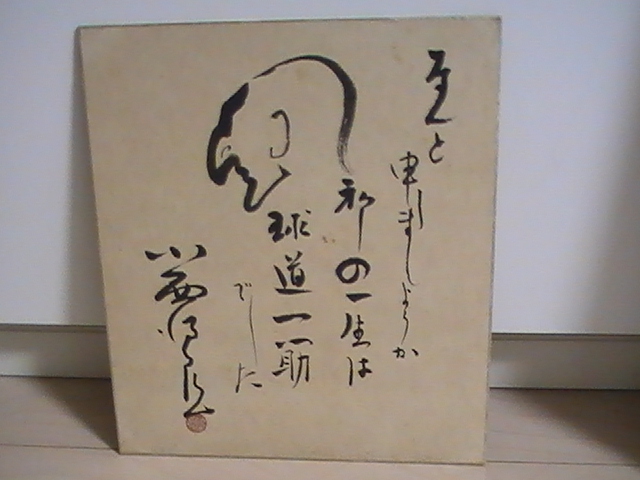 何と
申しましょうか
私の一生は
球道一筋
でした
小西得郎